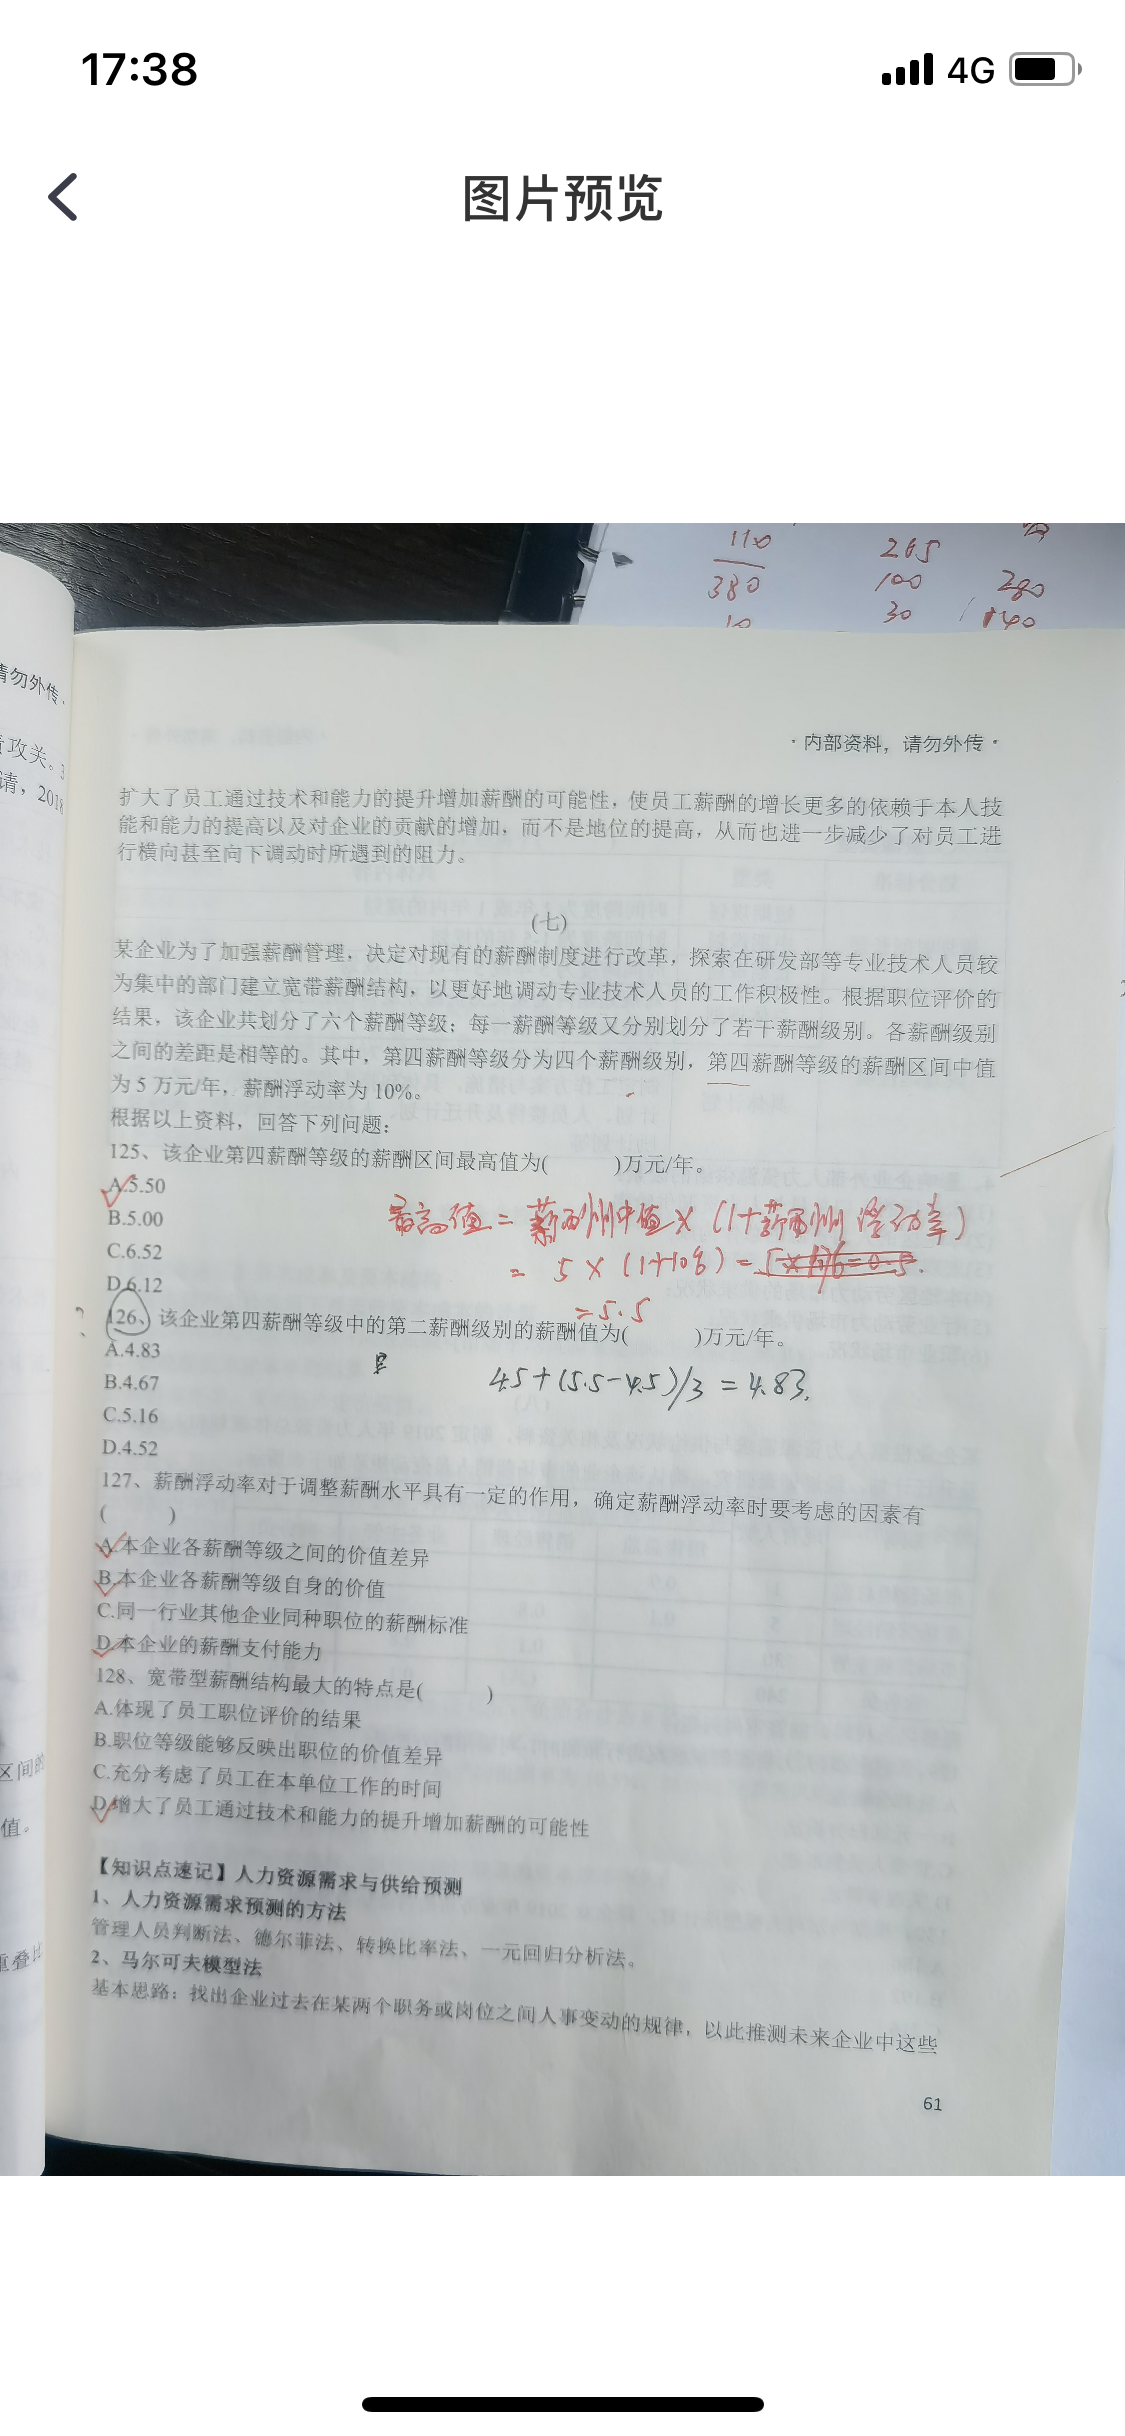 17:38
4G
图片预览
110
265
380
100
280
30
140
10
请勿外传·
责攻关。
请，2018
·内部资料，请勿外传·
扩大了员工通过技术和能力的提升增加薪酬的可能性，使员工薪酬的增长更多的依赖于本人技
能和能力的提高以及对企业的贡献的增加，而不是地位的提高，从而也进一步减少了对员工进
行横向甚至向下调动时所遇到的阻力。
(七)
某企业为了加强薪酬管理，决定对现有的薪酬制度进行改革，探索在研发部等专业技术人员较
为集中的部门建立宽带薪酬结构，以更好地调动专业技术人员的工作积极性。根据职位评价的
结果，该企业共划分了六个薪酬等级；每一薪酬等级又分别划分了若干薪酬级别。各薪酬级别
之间的差距是相等的。其中，第四薪酬等级分为四个薪酬级别，第四薪酬等级的薪酬区间中值
为 5 万元/年，薪酬浮动率为 10%。
根据以上资料，回答下列问题：
125、该企业第四薪酬等级的薪酬区间最高值为( )万元/年。
A.5.50
B.5.00
C.6.52
D.6.12
最高值 = 薪酬中值 × (1+薪酬浮动率)
= 5 × (1+10%) =
=5.5
126、该企业第四薪酬等级中的第二薪酬级别的薪酬值为( )万元/年。
A.4.83
B.4.67
C.5.16
D.4.52
4.5+(5.5-4.5)/3 = 4.83.
127、薪酬浮动率对于调整薪酬水平具有一定的作用，确定薪酬浮动率时要考虑的因素有
( )
A.本企业各薪酬等级之间的价值差异
B.本企业各薪酬等级自身的价值
C.同一行业其他企业同种职位的薪酬标准
D.本企业的薪酬支付能力
128、宽带型薪酬结构最大的特点是( )
A.体现了员工职位评价的结果
B.职位等级能够反映出职位的价值差异
C.充分考虑了员工在本单位工作的时间
D.增大了员工通过技术和能力的提升增加薪酬的可能性
【知识点速记】人力资源需求与供给预测
1、人力资源需求预测的方法
管理人员判断法、德尔菲法、转换比率法、一元回归分析法。
2、马尔可夫模型法
基本思路：找出企业过去在某两个职务或岗位之间人事变动的规律，以此推测未来企业中这些
61
区间的
值。
重叠比